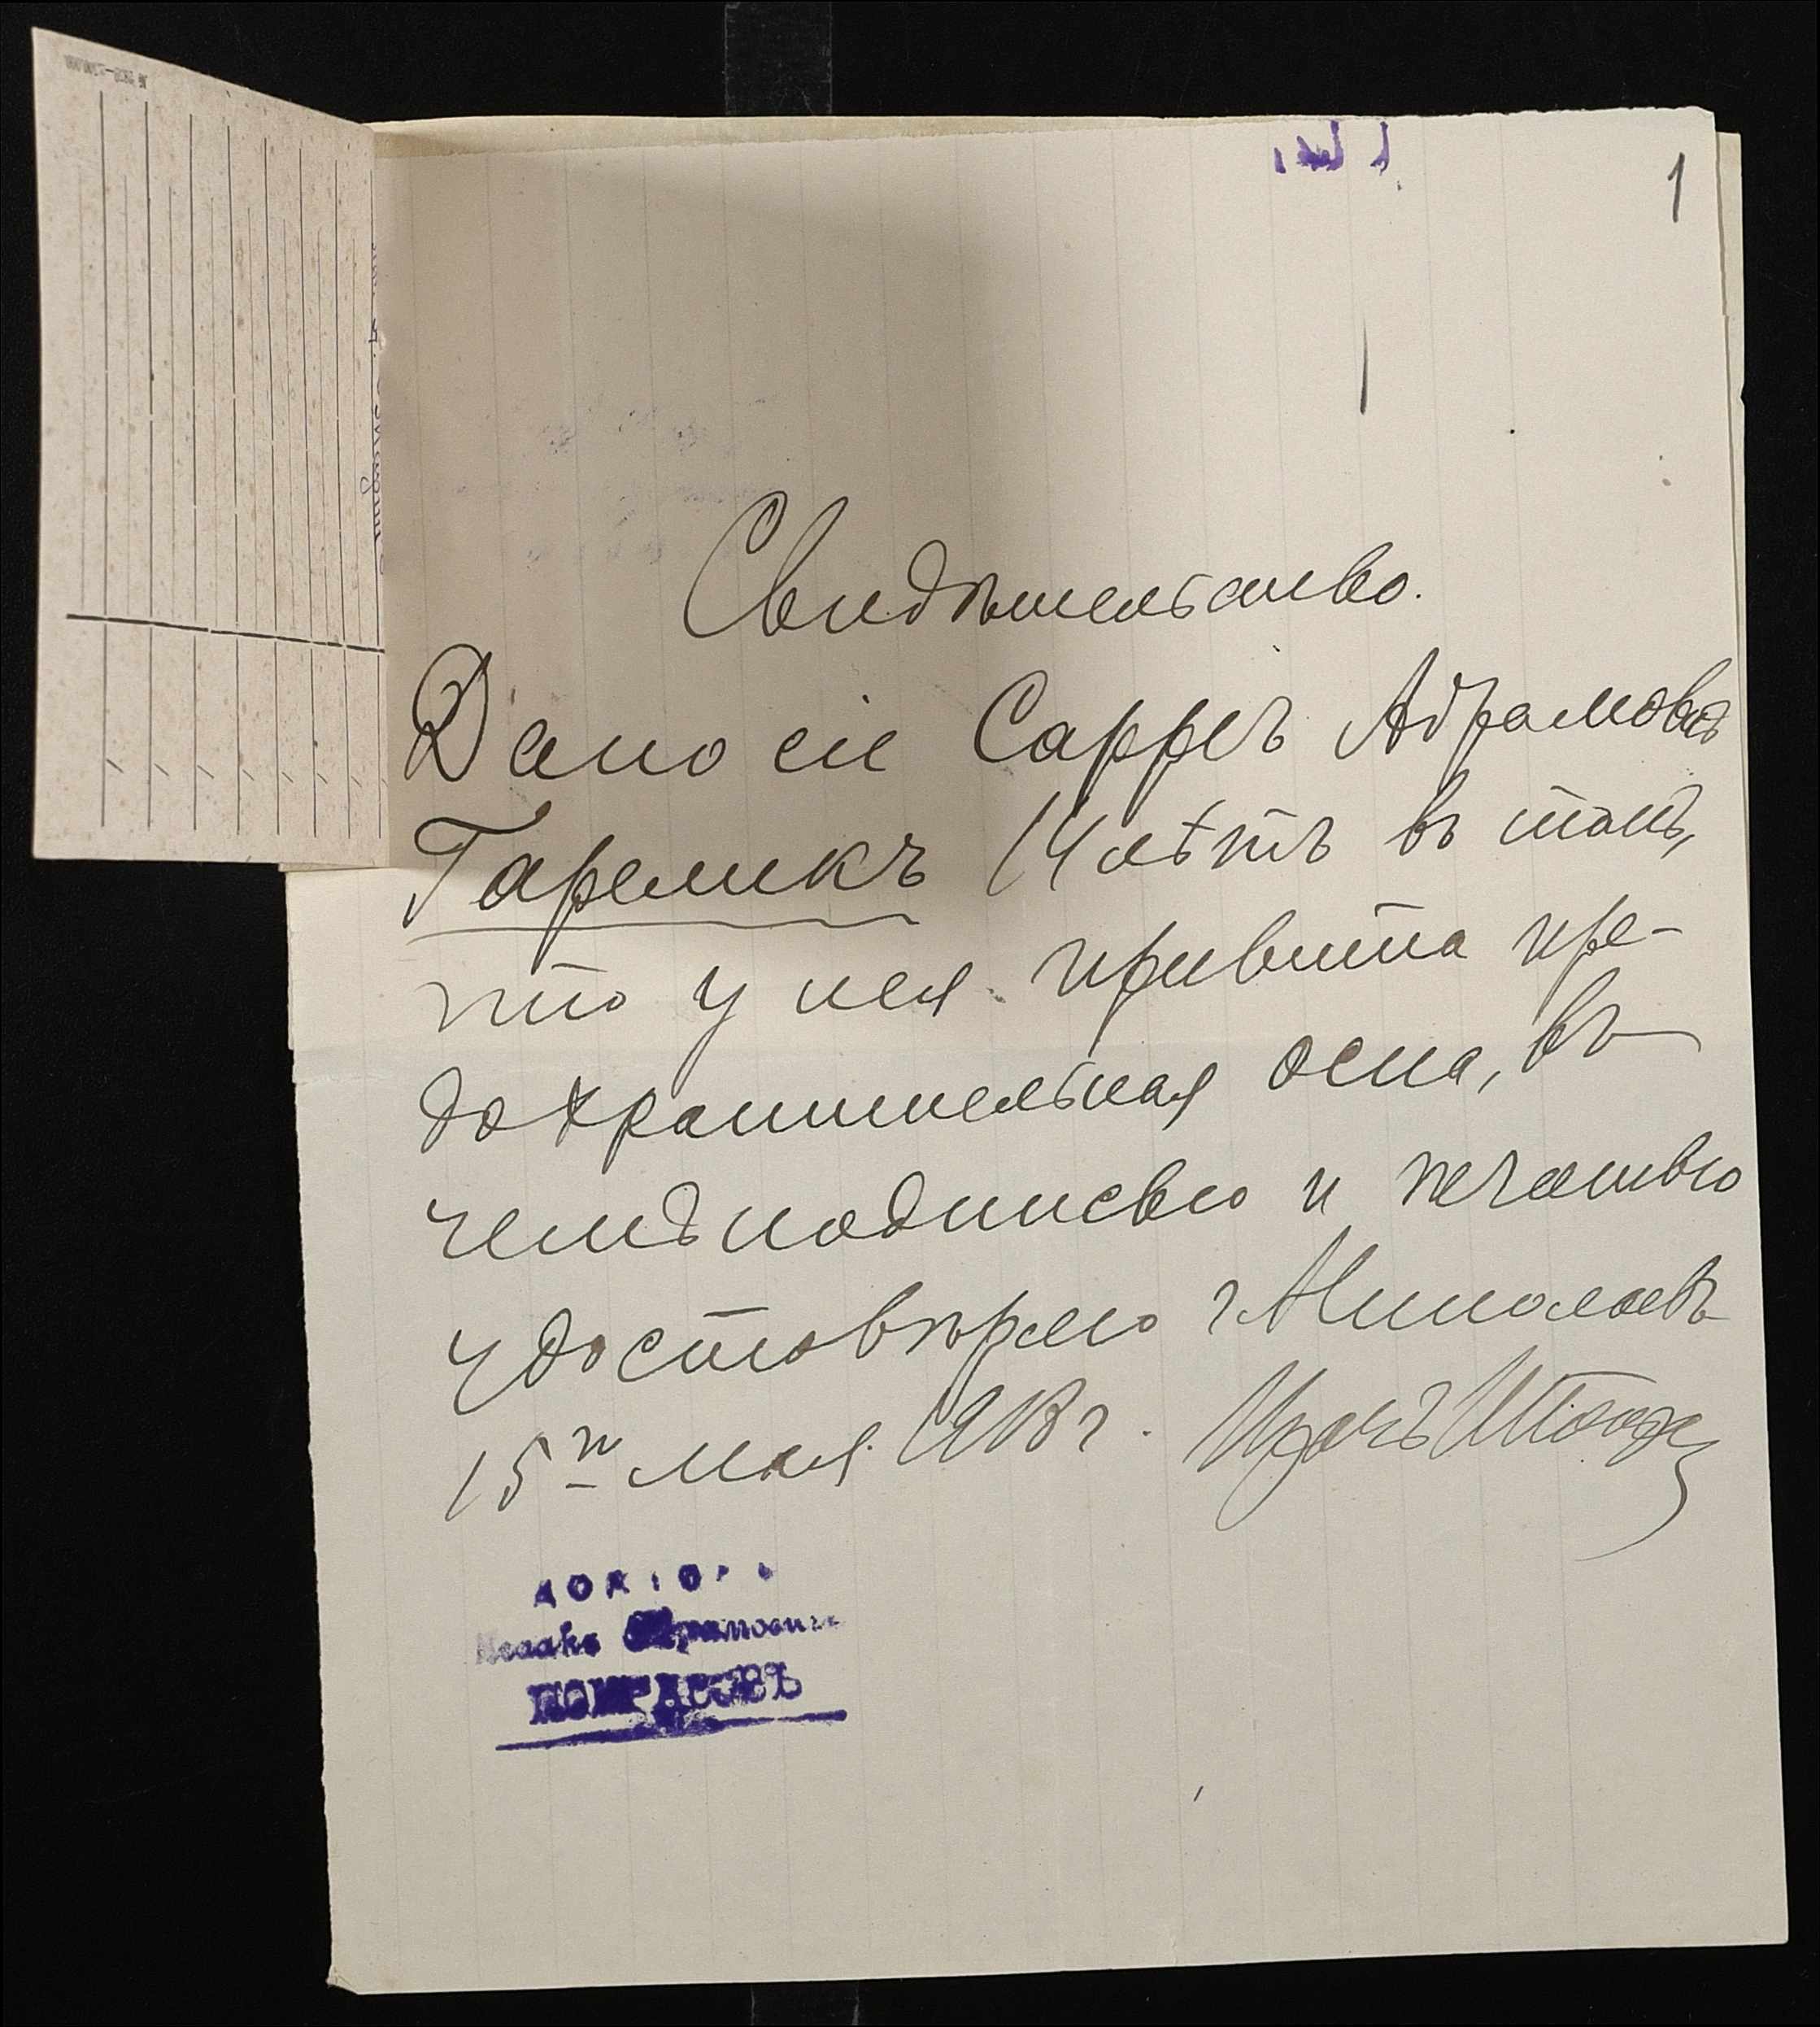 1
Свидѣтельство.
Дано сіе Саррѣ Абрамовнѣ
Гареликъ 14 лѣтъ въ томъ,
что у нея привита пре-
дохранительная оспа, въ
чемъ подписью и печатью
удостовѣряю г. Николаевъ
15го мая 1913 г. Врачъ
Исаакъ Абрамовичъ